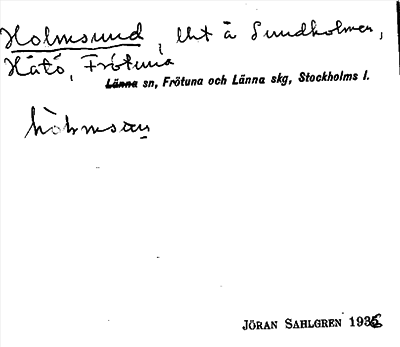 Holmsund, lht å Sundholmen,
Håtö, Frötuna
Länna sn, Frötuna och Länna skg, Stockholms l.
JÖRAN SAHLGREN 1936